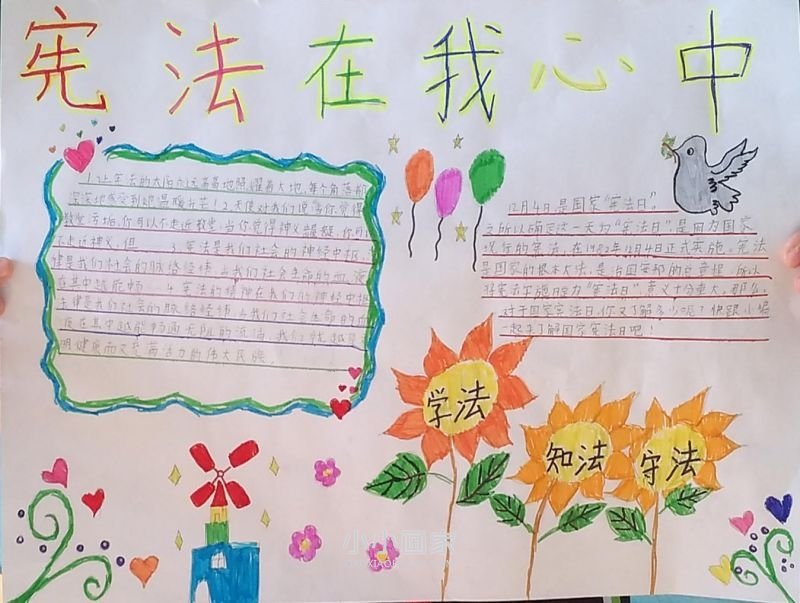 宪法在我心中
1.让宪法的太阳永远高高地照耀着大地,每个角落都
深深地感受到她温暖
2.天使对我们说:当你觉得
教堂污垢,你可以不走近教堂;当你觉得神父龌龊,你可以
不走近神父,但
3.宪法是我们社会的神经中枢,
律是我们社会的脉络经络,当我们社会生命的血液
在其中越能畅
4.宪法的精神在我们的神经中枢
法律是我们社会的脉络经络,当我们社会生命的血
液在其中越能畅通无阻的流淌,我们就越是
明健康而又充满活力的伟大民族。
12月4日是国家“宪法日”。
之所以确定这一天为“宪法日”,是因为国家
现行的宪法,在1982年12月4日正式实施。宪法
是国家的根本大法,是治国安邦的总章程,所以
将宪法实施日定为“宪法日”,意义十分重大。那么,
对于国家宪法日,你又了解多少呢?快跟小编
一起来了解国家宪法日吧!
学法
知法
守法
小小画家